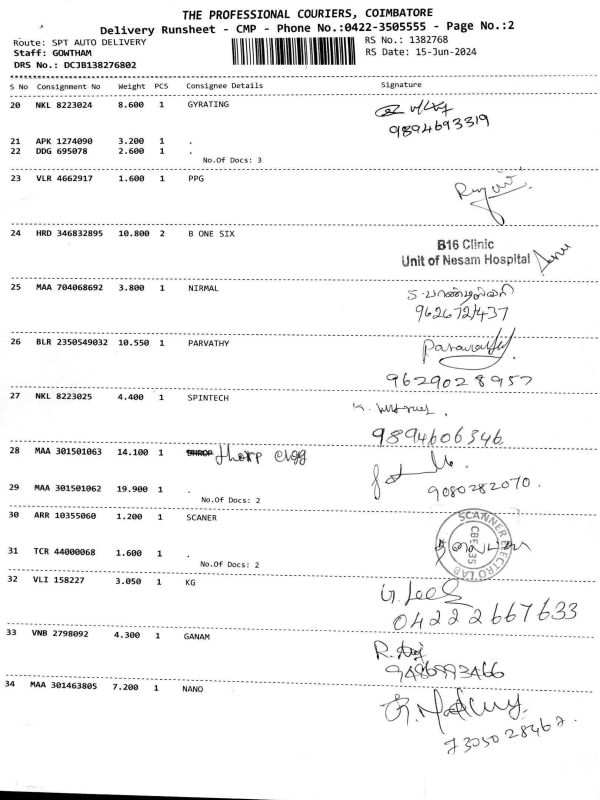 THE PROFESSIONAL COURIERS, COIMBATORE
Delivery Runsheet - CMP - Phone No.:0422-3505555 - Page No.:2
Route: SPT AUTO DELIVERY
RS No.: 1382768
Staff: GOWTHAM
RS Date: 15-Jun-2024
DRS No.: DCJB138276802
S No Consignment No Weight PCS Consignee Details Signature
20 NKL 8223024 8.600 1 GYRATING
9894693319
21 APK 1274090 3.200 1 .
22 DDG 695078 2.600 1 .
No.Of Docs: 3
23 VLR 4662917 1.600 1 PPG
24 HRD 346832895 10.800 2 B ONE SIX
B16 Clinic
Unit of Nesam Hospital
25 MAA 704068692 3.800 1 NIRMAL
9626721437
26 BLR 2350549032 10.550 1 PARVATHY
9629028957
27 NKL 8223025 4.400 1 SPINTECH
9894606346
28 MAA 301501063 14.100 1
29 MAA 301501062 19.900 1 .
9080282070.
No.Of Docs: 2
30 ARR 10355060 1.200 1 SCANER
31 TCR 44000068 1.600 1 .
No.Of Docs: 2
32 VLI 158227 3.050 1 KG
04222667633
33 VNB 2798092 4.300 1 GANAM
9486993466
34 MAA 301463805 7.200 1 NANO
7305028467.